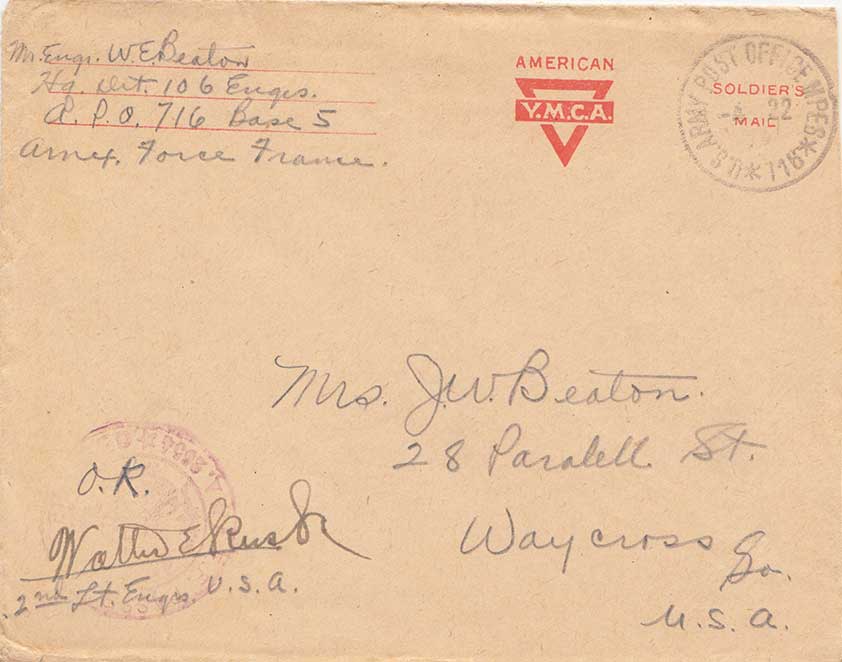 Mr. Engr. W.E. Beaton
Hq. Det. 106 Engrs.
A. P. O. 716 Base 5
Amex. Force France.
AMERICAN
Y.M.C.A.
SOLDIER'S
MAIL
U.S. ARMY POST OFFICE M.P.E.S. * 716 *
22
Mrs. J.W. Beaton.
28 Paralell St.
Waycross
Ga.
U.S.A.
O.K.
Walter E
2nd Lt. Engrs. U.S.A.